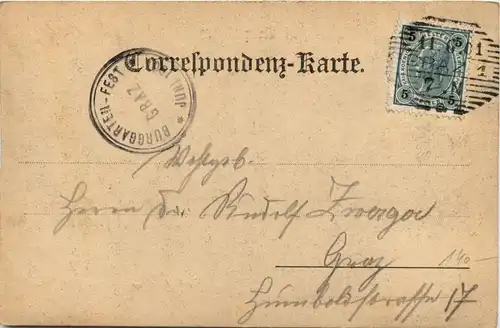 Correspondenz-Karte.
BURGGARTEN-FEST
GRAZ
JUNI
5 5
5 5
11 6 01
GRAZ
Wohlgeb.
Herrn Dr. Rudolf Zwerger
Graz
140
Humboldstrasse 17